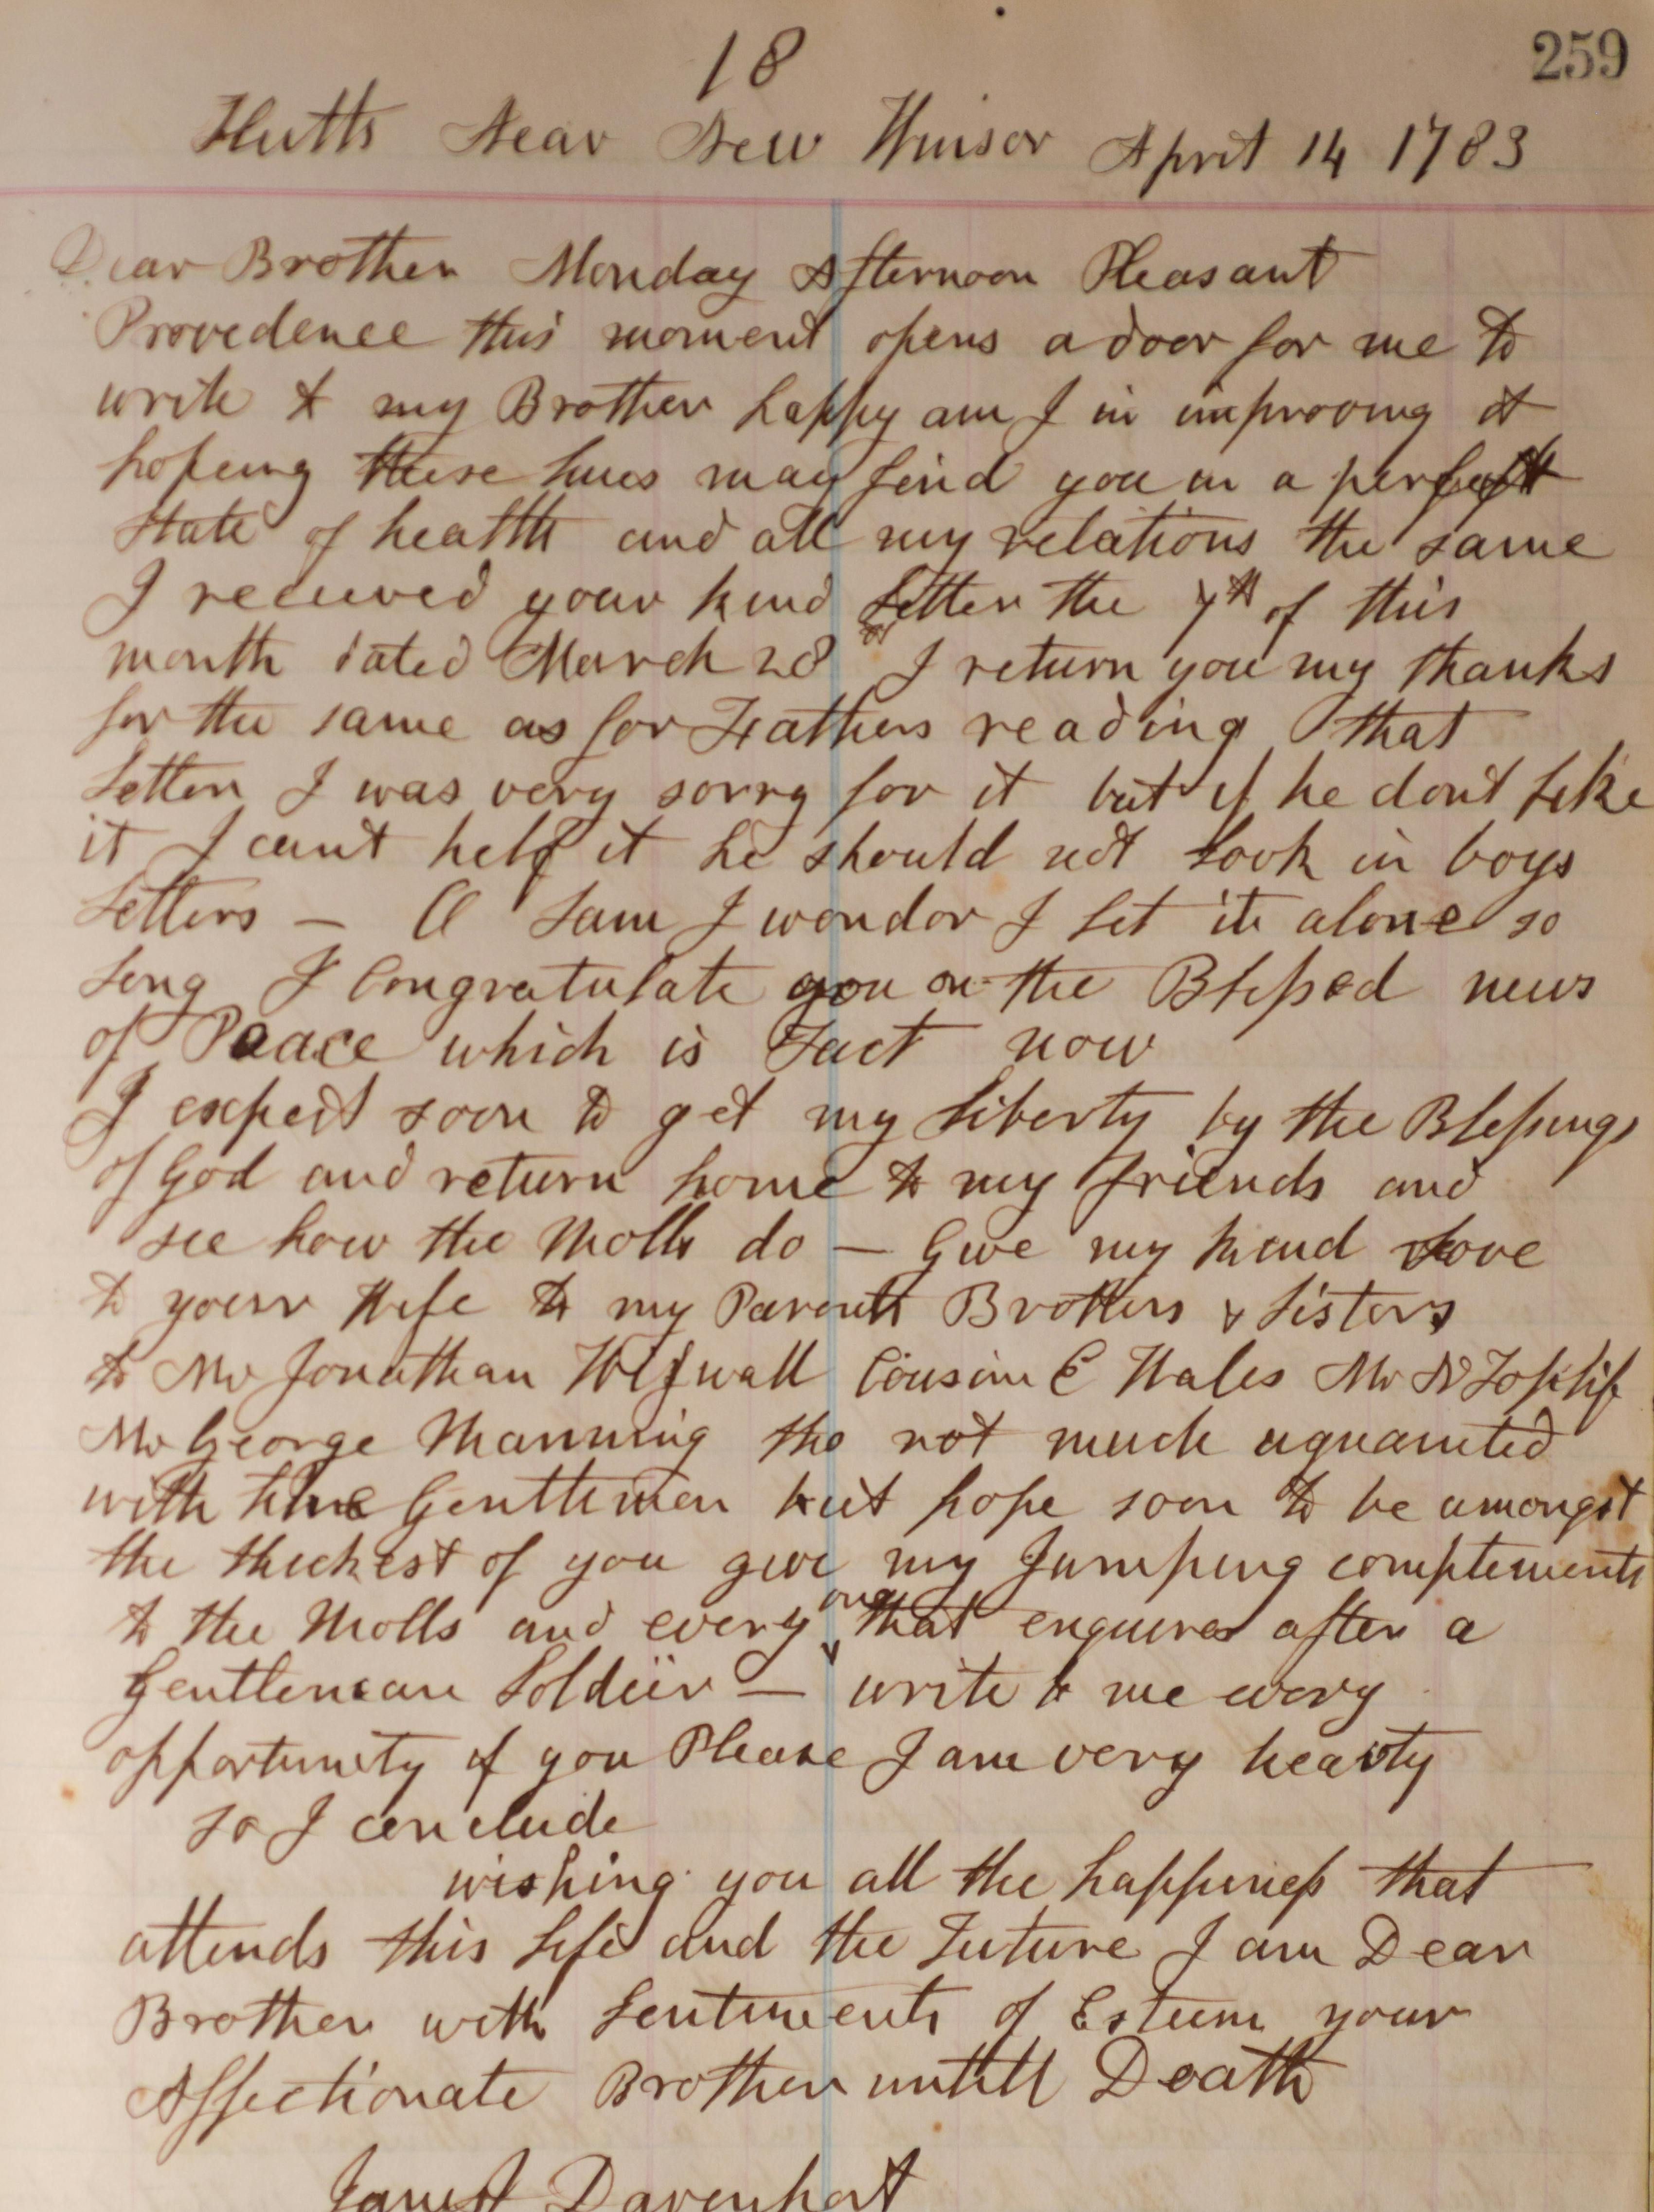 18
259
Hutts Near New Winsor April 14 1783
Dear Brother Monday Afternoon Pleasant
Provedence this moment opens a door for me to
write to my Brother happy am I in improoving it
hopeing these lines may find you in a perfect
state of health and all my relations the same
I received your kind Letter the 7th of this
month dated March 28 I return you my thanks
for the same as for Fathers reading that
Letter I was very sorry for it but if he dont like
it I cant help it he should not look in boys
Letters — O Sam I wondor I let it alone so
long I Congratulate you on the Blessed news
of Peace which is Fact now
I expect soon to get my Liberty by the Blessings
of God and return home to my friends and
see how the Molls do — Give my kind Love
to your Wife to my Parents Brothers & Sisters
to Mr Jonathan Cousin E Wales Mr N Topliff
Mr George Manning tho not much aquainted
with Gentlemen but hope soon to be amongst
the thickest of you give my Jumping complements
to the Molls and every one that enquires after a
Gentleman Soldier — write to me every
opportunity if you Please I am very hearty
so I conclude
wishing you all the happiness that
attends this Life and the Future I am Dear
Brother with Sentiments of Esteem your
Affectionate Brother untill Death
James Davenport